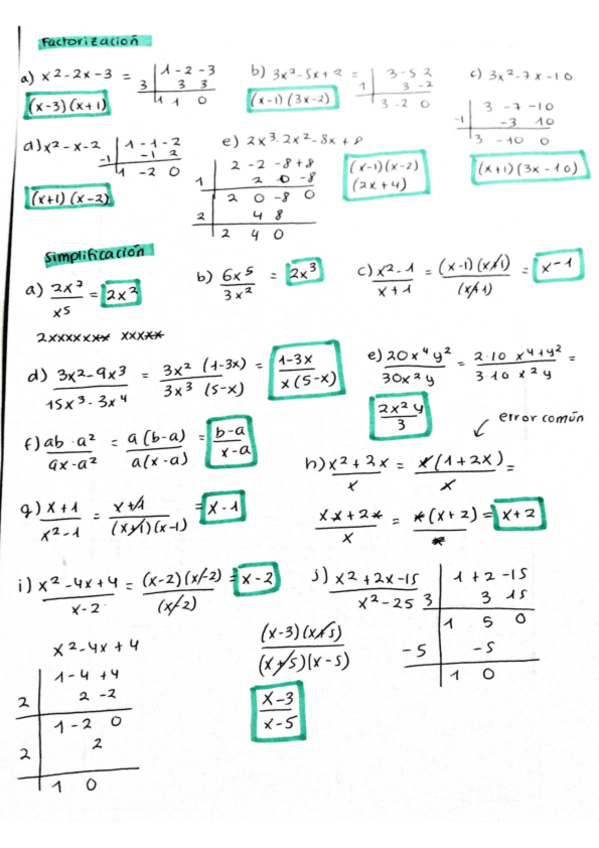 Factorización
a) x²-2x-3 =
3 | 1 -2 -3
3 3
1 1 0
(x-3)(x+1)
b) 3x²-5x+2 =
1 | 3 -5 2
3 -2
3 -2 0
(x-1)(3x-2)
c) 3x²-7x-10
-1 | 3 -7 -10
-3 10
3 -10 0
(x+1)(3x-10)
d) x²-x-2
-1 | 1 -1 -2
-1 2
1 -2 0
(x+1)(x-2)
e) 2x³-2x²-8x+8
1 | 2 -2 -8 +8
2 0 -8
2 | 2 0 -8 0
4 8
2 4 0
(x-1)(x-2)
(2x+4)
Simplificación
a) 2x⁷/x⁵ = 2x²
2xxxxxxx xxxxx
b) 6x⁵/3x² = 2x³
c) x²-1/x+1 = (x-1)(x+1)/(x+1) = x-1
d) 3x²-9x³/15x³-3x⁴ = 3x²(1-3x)/3x³(5-x) = 1-3x/x(5-x)
e) 20x⁴y²/30x²y = 2·10 x⁴+y²/3·10 x²y =
2x²y/3
error común
f) ab·a²/ax-a² = a(b-a)/a(x-a) = b-a/x-a
h) x²+2x/x = x(1+2x)/x =
xx+2x/x = x(x+2)/x = x+2
g) x+1/x²-1 = x+1/(x+1)(x-1) = x-1
i) x²-4x+4/x-2 = (x-2)(x-2)/(x-2) = x-2
x²-4x+4
2 | 1 -4 +4
2 -2
2 | 1 -2 0
2
1 0
j) x²+2x-15/x²-25
3 | 1 +2 -15
3 15
1 5 0
-5 | -5
1 0
(x-3)(x+5)/(x+5)(x-5)
x-3/x-5